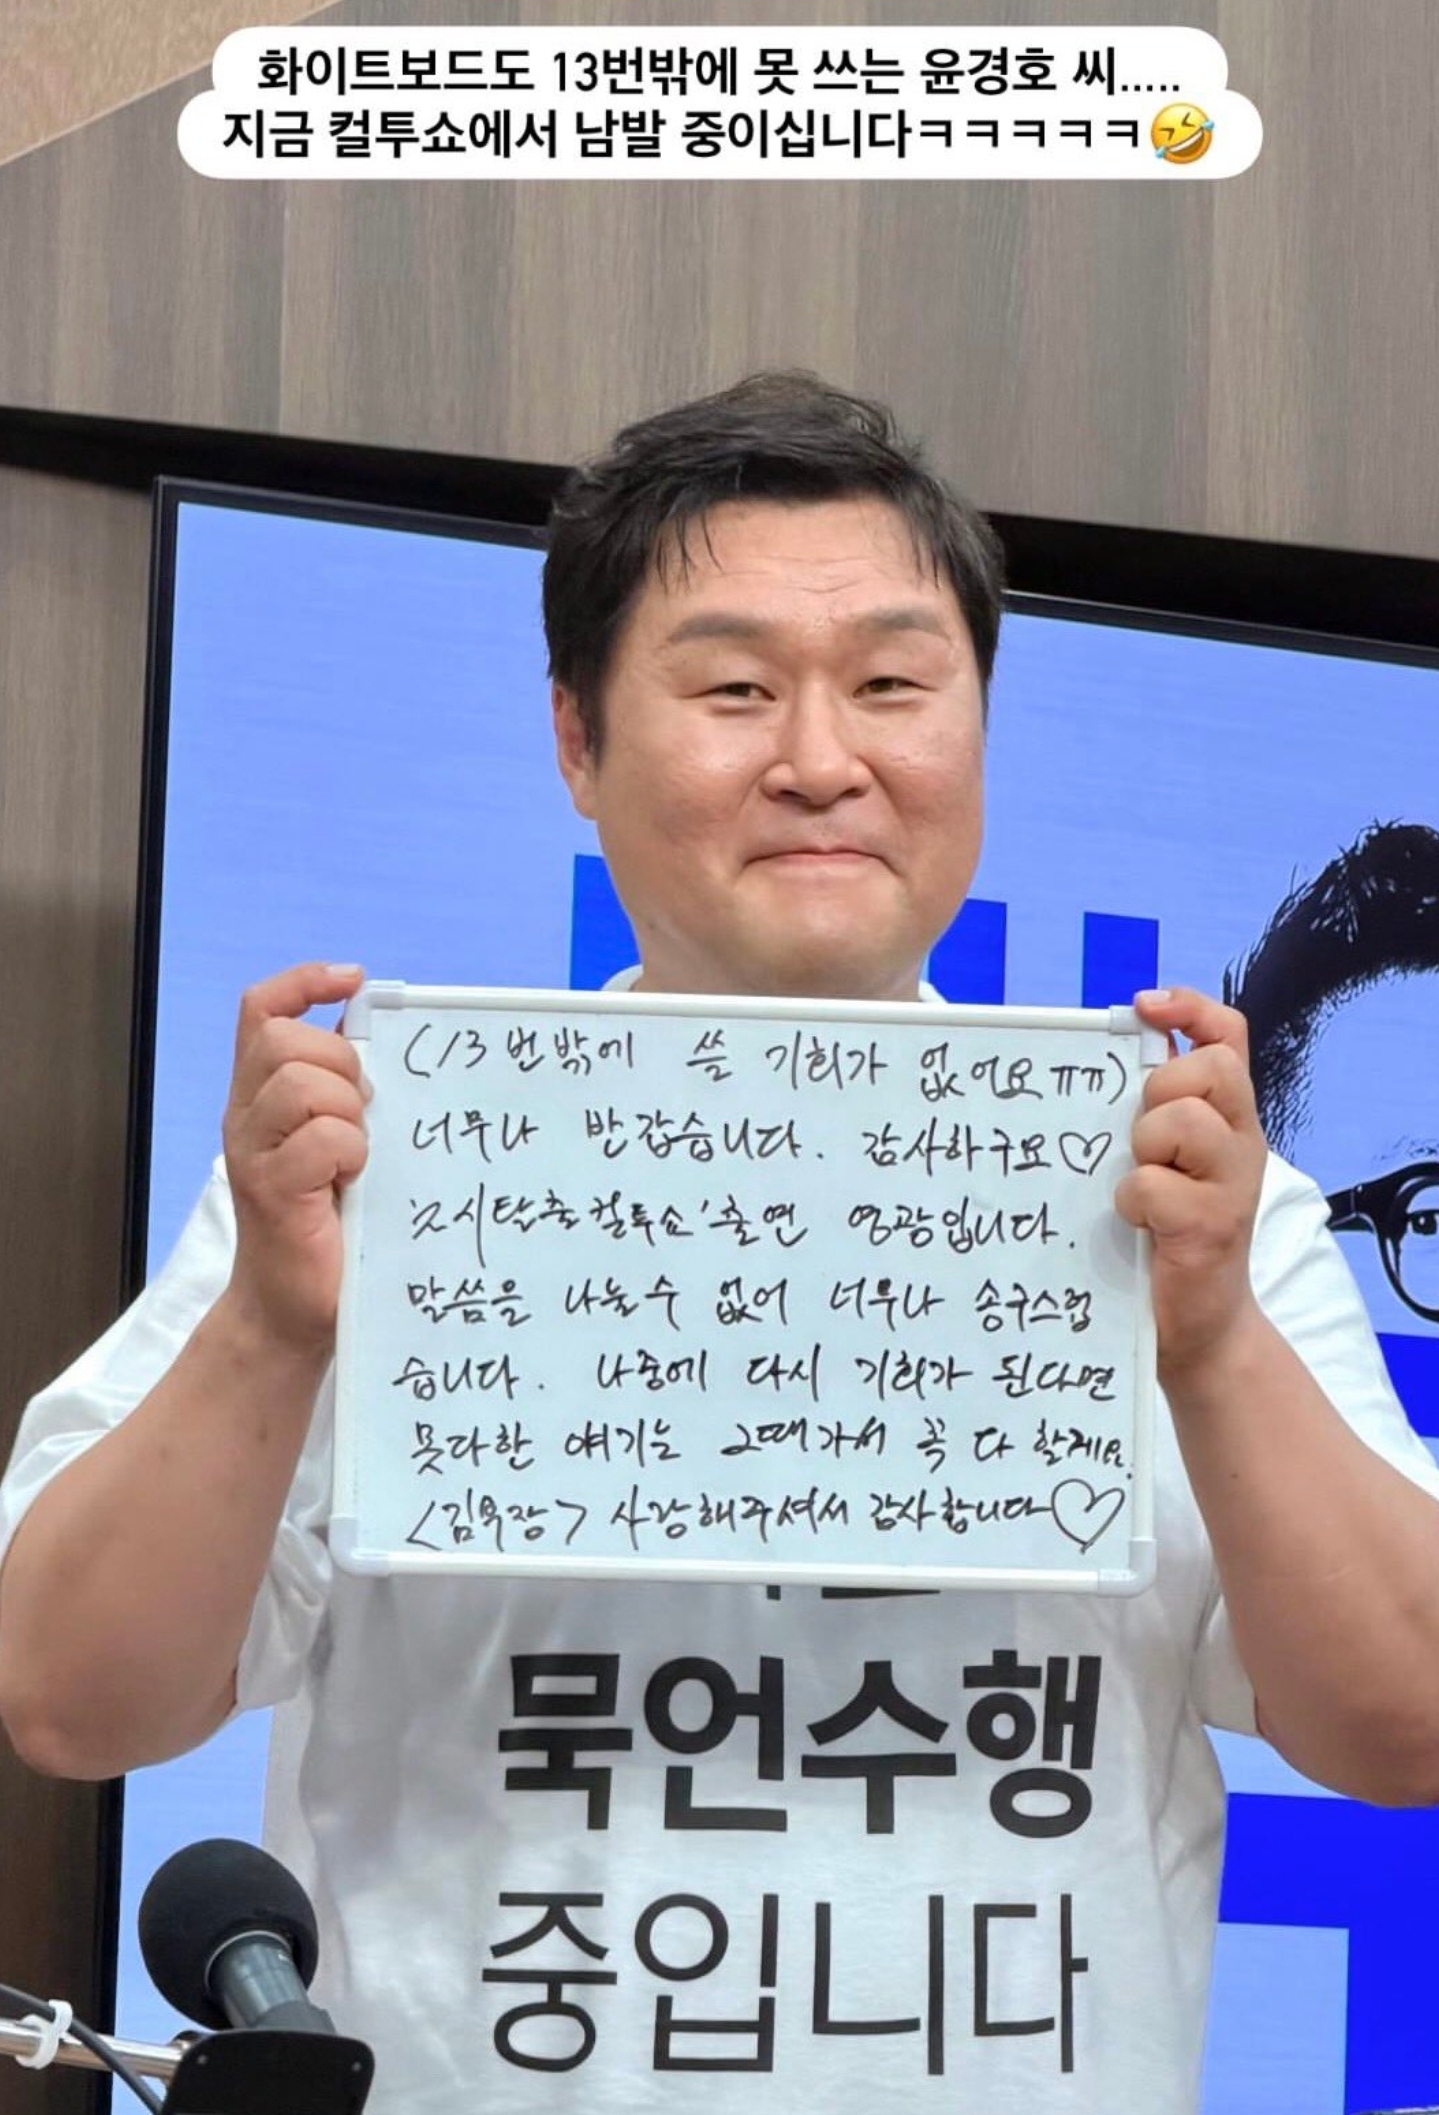 화이트보드도 13번밖에 못 쓰는 윤경호 씨.....
지금 컬투쇼에서 남발 중이십니다ㅋㅋㅋㅋㅋ🤣
(13번밖에 쓸 기회가 없어요ㅠㅠ)
너무나 반갑습니다. 감사하구요♡
'2시탈출컬투쇼' 출연 영광입니다.
말씀을 나눌 수 없어 너무나 송구스럽
습니다. 나중에 다시 기회가 된다면
못다한 얘기는 그때가서 꼭 다 할게요.
<김부장> 사랑해주셔서 감사합니다♡
묵언수행
중입니다